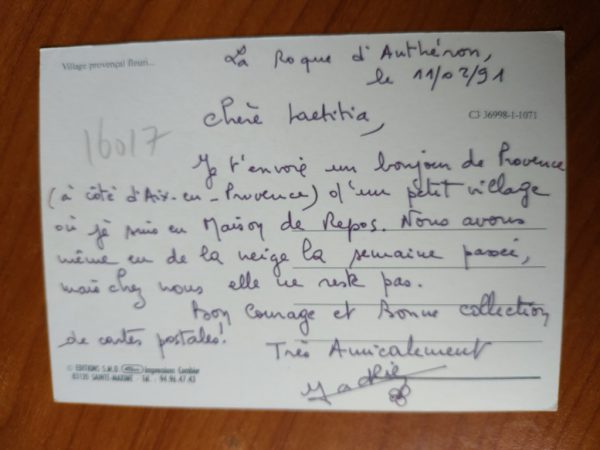 La Roque d'Anthéron,
Village provençal fleuri...
le 11/02/91
Chère Laetitia,
C3 36998-1-1071
16017
Je t'envoie un bonjour de Provence
(à côté d'Aix-en-Provence) d'un petit village
où je suis en Maison de Repos. Nous avons
même eu de la neige la semaine passée,
mais chez nous elle ne reste pas.
Bon Courage et Bonne collection
de cartes postales!
Très Amicalement
Jackie
© EDITIONS S.M.D. Impressions Combier
83120 SAINTE-MAXIME - Tél. : 94.96.47.43